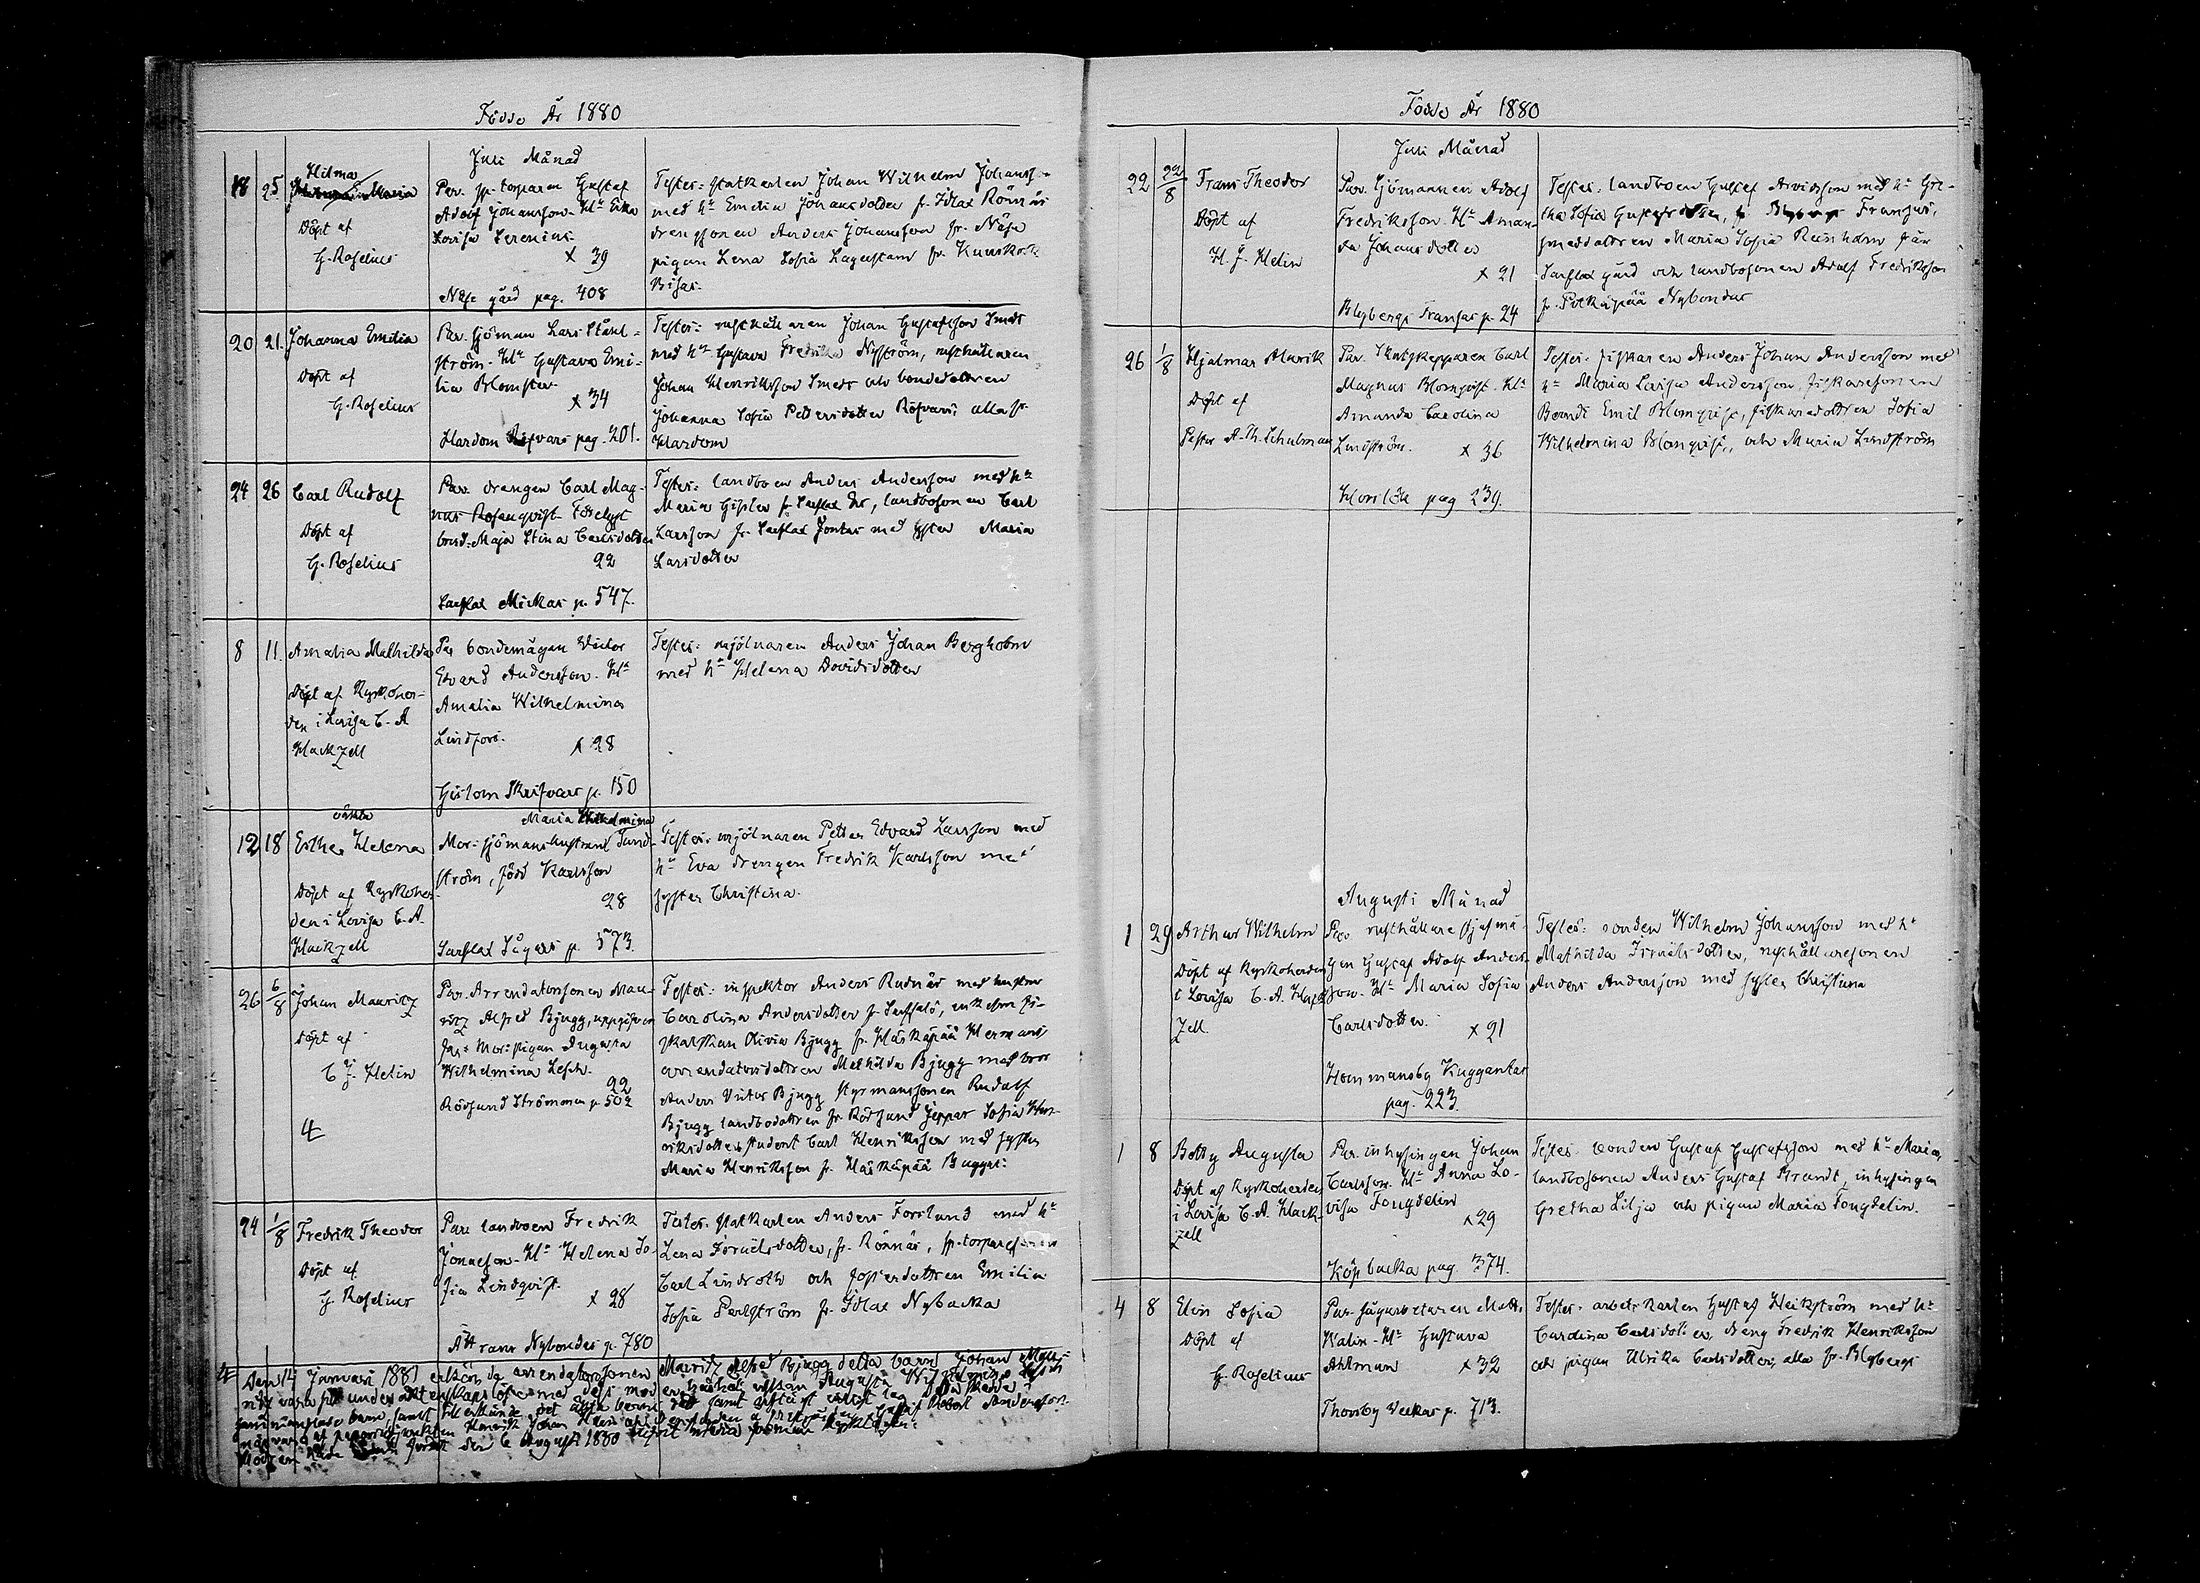 Födde År 1880
Juli Månad
18 25 Hilma Maria
Döpt af
G. Roselius
Par. sp. torparen Gustaf
Adolf Johansson. H:u Eva
Lovisa Serenius.
x 39
Näse gård pag. 408
Testes: statkarlen Johan Wilhelm Johansson
med h:u Emelia Johansdotter fr. Idlax Rönnäs
drengsonen Anders Johansson fr. Näse
pigan Lena Sofia Lagerstam fr. Kuuskoski
Bisas.
20 21. Johanna Emilia
Döpt af
G. Roselius
Par. sjöman Lars Ståhl-
ström. H:u Gustava Emi-
lia Blomster
x 34
Hardom Räfvars pag. 201.
Testes: rusthållaren Johan Gustafsson Smeds
med h:u Gustava Fredrika Nyström, rusthållaren
Johan Henriksson Smeds och bondedottren
Johanna Sofia Pettersdotter Räfvars; alla fr.
Hardom
24 26 Carl Rudolf
Döpt af
G. Roselius
Par. drengen Carl Mag-
nus Rosenqvist Förelyst
brud: Maja Stina Carlsdotter
22
Sarflax Mickas p. 547.
Testes: landboen Anders Andersson med h:u
Maria Gisler fr. Sarflax, landbosonen Carl
Larsson fr. Sarflax Jontas med syster Maria
Larsdotter
8 11. Amalia Mathilda
Döpt af Kyrkoher-
den i Lovisa C. A
Hackzell
Par bondemågen Victor
Edvard Andersson. H:u
Amalia Wilhelmina
Lindfors.
x 28
Gislom Skrifvars p. 150
Testes: mjölnaren Anders Johan Bergholm
med h:u Helena Davidsdotter
12 18 oäkta
Esther Helena
Döpt af Kyrkoher-
den i Lovisa C. A.
Hackzell
Maria Wilhelmina
Mor: sjömans hustrun Sund-
ström, född Karlsson
28
Sarflax Sågars p. 573.
Testes: mjölnaren Petter Edvard Larsson med
h:u Eva drengen Fredrik Karlsson med
syster Christina.
26 6/8 Johan Mauritz
Döpt af
C J. Helin
Par. Arrendatorsonen Mau-
ritz Alfred Bjugg, uppgifven
far: Mor: pigan Augusta
Wilhelmina Lesch.
22
Rödsund Strömmen p 502
Testes: inspektor Anders Rudnäs med hustru
Carolina Andersdotter fr. Sarfsalö, enkefru
Olivia Bjugg fr. Härkäpää Hermans
arrendatorsdottren Mathilda Bjugg med bror
Anders Victor Bjugg styrmanssonen Rudolf
Bjugg landbodottren fr. Rödsund Jeppas Sofia Hen-
riksdotter student Carl Henriksson med syster
Maria Henriksson fr. Härkäpää Buggas:
24 1/8 Fredrik Theodor
Döpt af
G. Roselius
Par: landboen Fredrik
Jonasson. H:u Helena So-
fia Lindqvist.
x 28
Attrans Nybondes p. 780
Testes: statkarlen Anders Forslund med h:u
Lena Israelsdotter, fr. Rönnäs, sp. torparesonen
Carl Lindroth och fosterdottren Emilia
Sofia Perlström fr. Idlax Nybacka
Den 14 Januari 1881 erkände arrendatorsonen Mauritz Alfred Bjugg detta barn Johan Mau-
den 6 Augusti 1880
Födde År 1880
Juli Månad
22 22/8 Frans Theodor
Döpt af
H. J. Helin
Par. Sjömannen Adolf
Fredriksson. H:u Aman-
da Johansdotter
x 21
Blybergs Fransas p. 24
Testes: landboen Gustaf Arvidsson med h:u Gre-
tha Sofia Gustafsdotter, fr. Fransas,
smeddottren Maria Sofia Reinholm från
Sarflax gård och landbosonen Adolf Fredriksson
fr. Pockapää Nybondas
26 1/8 Hjalmar Alarik
Döpt af
Pastor A. Th. Schulman
Par. Skutskepparen Carl
Magnus Blomqvist. H:u
Amanda Carolina
Lindström. x 36
pag 239.
Testes: fiskaren Anders Johan Andersson med
h:u Maria Lovisa Andersson, fiskaresonen
Berndt Emil Blomqvist, fiskaredottren Sofia
Wilhelmina Blomqvist, och Maria Lindström
Augusti Månad
1 29 Arthur Wilhelm
Döpt af Kyrkoherden
i Lovisa C. A. Hack-
zell.
Par rusthållare
gen Gustaf Adolf Anders-
son. H:u Maria Sofia
Carlsdotter.
x 21
Hommansby Kuggantas
pag. 223.
Testes: bonden Wilhelm Johansson med h:u
Mathilda Israelsdotter, rusthållaresonen
Anders Andersson med syster Christina
1 8 Betty Augusta
Döpt af Kyrkoherden
i Lovisa C. A. Hack-
zell
Par. inhysingen Johan
Carlsson. H:u Anna Lo-
visa Fougdelin
x 29
Köpbacka pag. 374.
Testes. bonden Gustaf Gustafsson med h:u Maria,
landbosonen Anders Gustaf Brandt, inhysingen
Gretha Lilja och pigan Maria Fougdelin.
4 8 Elin Sofia
Döpt af
G. Roselius
Par. Sågarbetaren Matts
Malin. H:u Gustava
Ahlman x 32
Thorsby Veckas p. 713.
Testes: arbetskarlen Gustaf Heikström med h:u
Carolina Carlsdotter, dreng Fredrik Henriksson
och pigan Ulrika Carlsdotter, alla fr. Blybergs